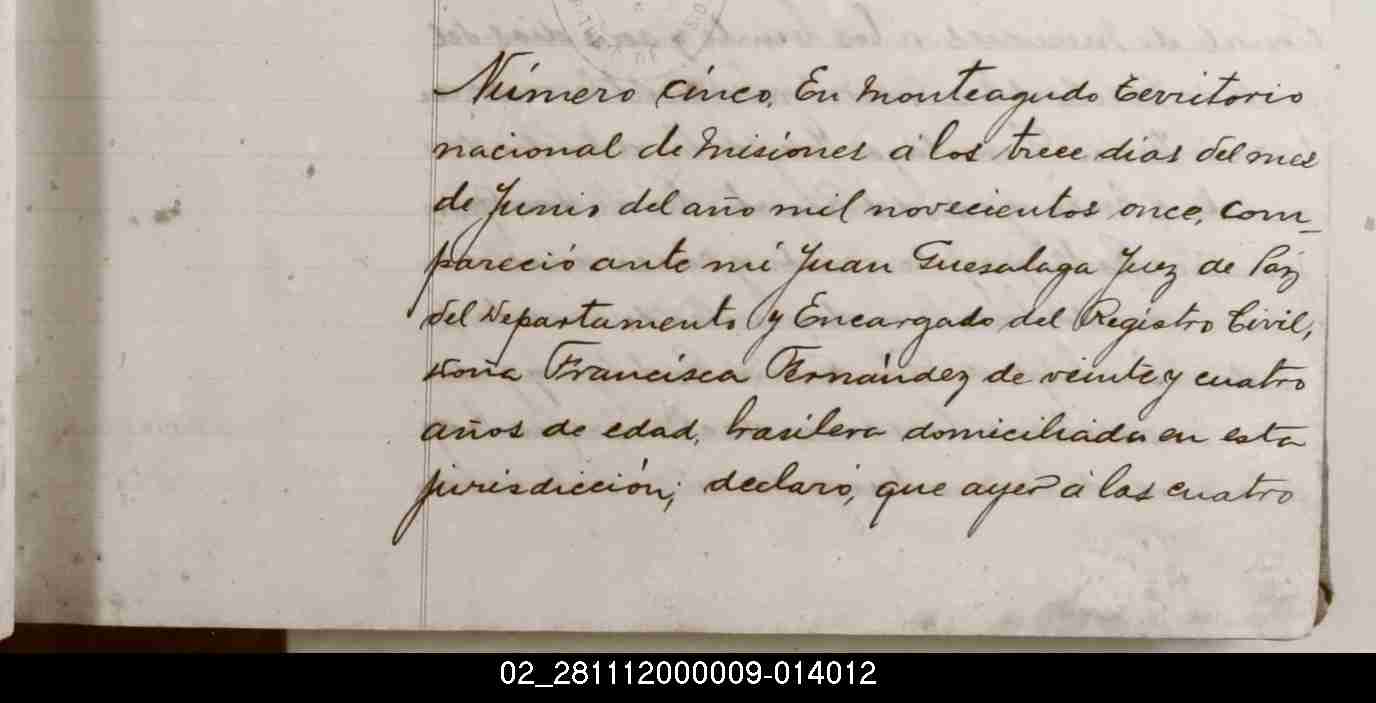 Número cinco. En Monteagudo territorio
nacional de Misiones á los trece dias del mes
de Junio del año mil novecientos once, com-
pareció ante mi Juan Guesalaga Juez de Paz
del Departamento y Encargado del Registro Civil,
doña Francisca Fernández de veinte y cuatro
años de edad, brasilera domiciliada en esta
jurisdicción; declaró, que ayer á las cuatro
02_281112000009-014012